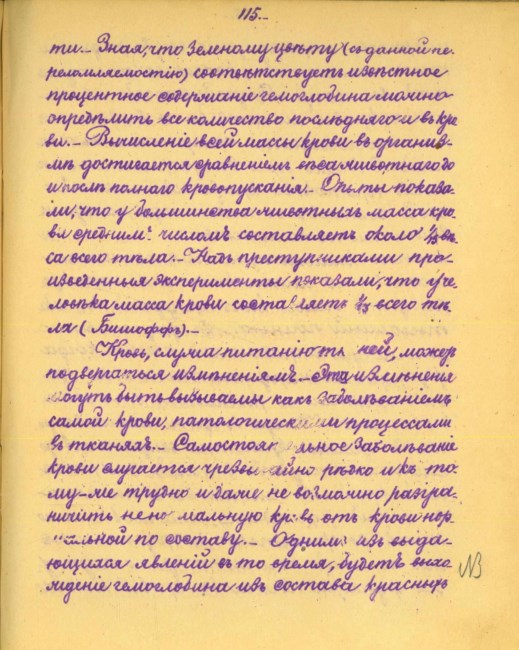 115.–
ти.– Зная, что зеленому цвѣту (съ данной пе-
реломляемостію) соотвѣтствуетъ извѣстное
процентное содержаніе гемоглобина можно
опредѣлить все количество послѣдняго и въ кро
ви.– Вычисленіе всей массы крови въ организ-
мѣ достигается сравненіемъ вѣса животнаго до
и послѣ полнаго кровопусканія.– Опыты показа-
ли, что у большинства животныхъ масса кро-
ви среднимъ числомъ составляетъ около 1/13 вѣ-
са всего тѣла.– Надъ преступниками про-
изведенные эксперименты показали, что у че-
ловѣка масса крови составляетъ всего тѣ-
ла (Бишоффъ).–
Кровь, служа питанію тканей, можетъ
подвергаться измѣненіямъ.– Эти измѣненія
могутъ быть вызываемы какъ заболѣваніемъ
самой крови, патологическими процессами
въ тканяхъ.– Самостоятельное заболѣваніе
крови случается чрезвычайно рѣдко и къ то-
му-же трудно и даже не возможно разгра-
ничить ненормальную кровь отъ крови нор-
мальной по составу.– Однимъ изъ выда-
ющихся явленій въ то время, будетъ выхо-
жденіе гемоглобина изъ состава красныхъ
NB